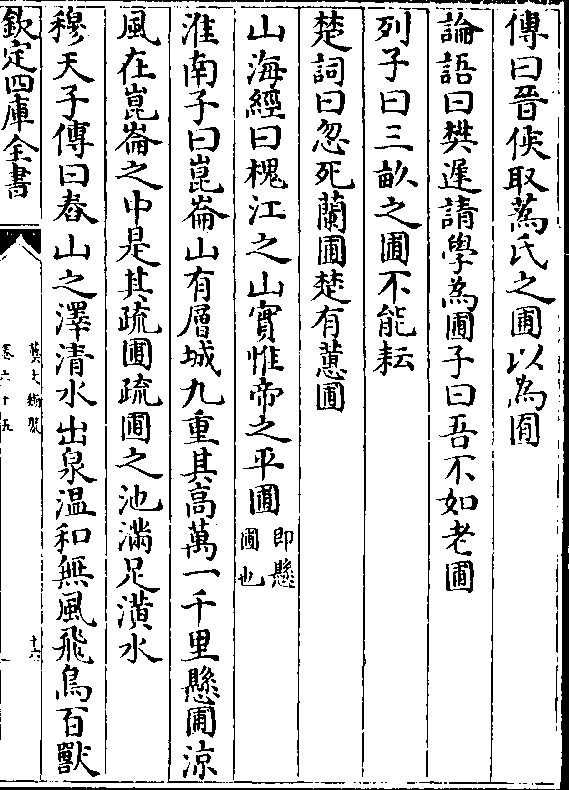 傳曰晉侯取蒍氏之圃以為囿
論語曰樊遲請學為圃子曰吾不如老圃
列子曰三畝之圃不能耘
楚詞曰忽死蘭圃楚有蕙圃
山海經曰槐江之山實惟帝之平圃即懸圃也
淮南子曰崑崙山有層城九重其高萬一千里懸圃涼
風在崑崙之中是其疏圃疏圃之池滿足潢水
穆天子傳曰舂山之澤清水出泉溫和無風飛鳥百獸
欽定四庫全書
藝文類聚
卷六十五
十六